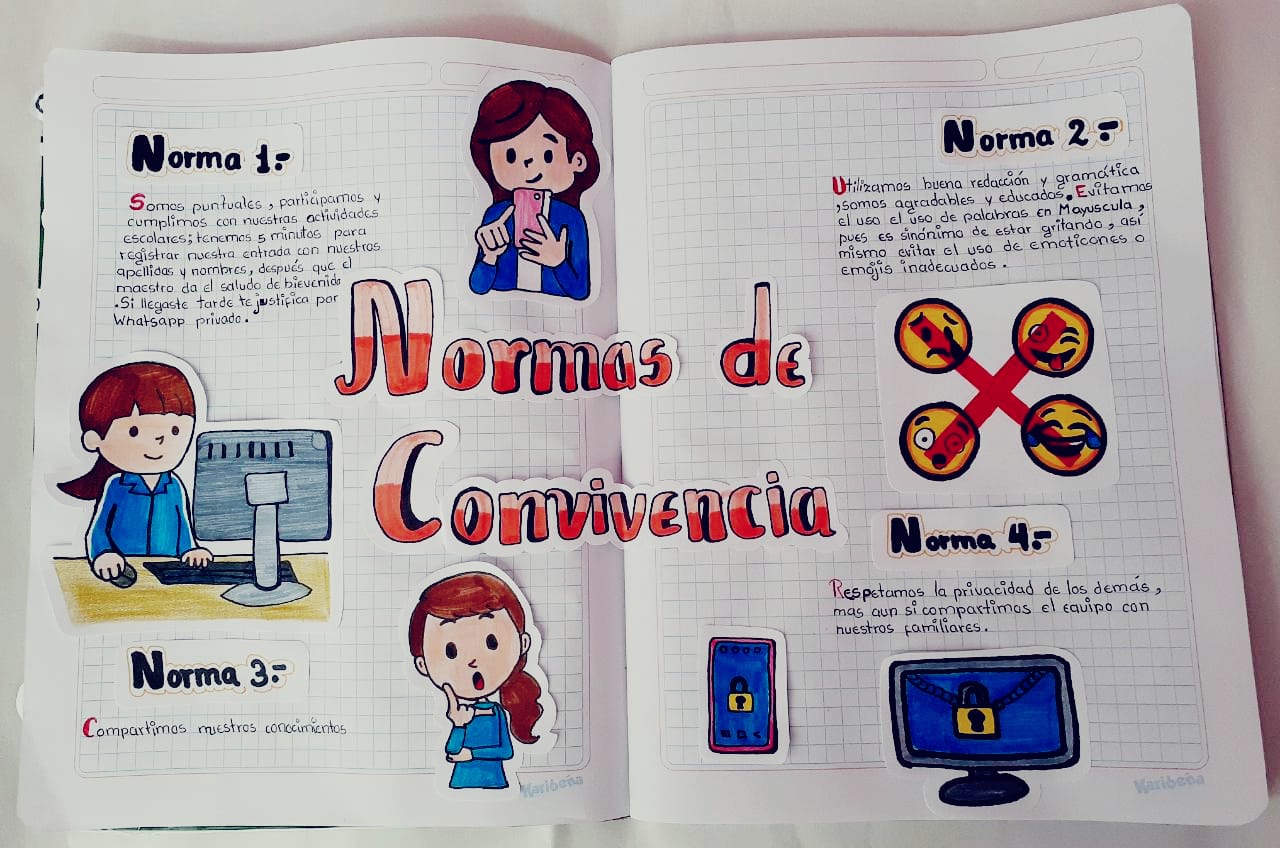 Norma 1.-
Somos puntuales, participamos y
cumplimos con nuestras actividades
escolares; tenemos 5 minutos para
registrar nuestra entrada con nuestros
apellidos y nombres, después que el
maestro da el saludo de bievenida
.Si llegaste tarde te justifica por
Whatsapp privado.
Normas de
Convivencia
Norma 3.-
Compartimos nuestros conocimientos
Norma 2.-
Utilizamos buena redacción y gramática
,somos agradables y educados. Evitamos
el uso el uso de palabras en Mayuscula,
pues es sinónimo de estar gritando, así
mismo evitar el uso de emoticones o
emojis inadecuados.
Norma 4.-
Respetamos la privacidad de los demás,
mas aun si compartimos el equipo con
nuestros familiares.
Karibeña
Karibeña